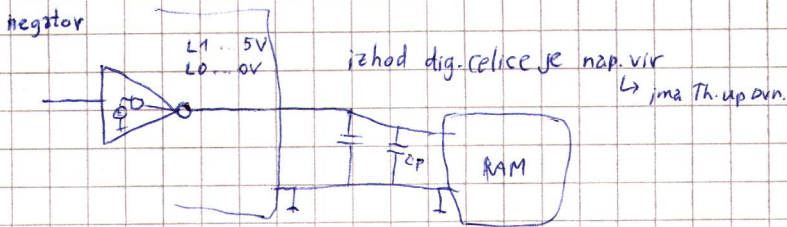 negator
L1 ... 5V
L0 ... 0V
izhod dig. celice je nap. vir
↳ ima Th. upornn.
Cp
RAM